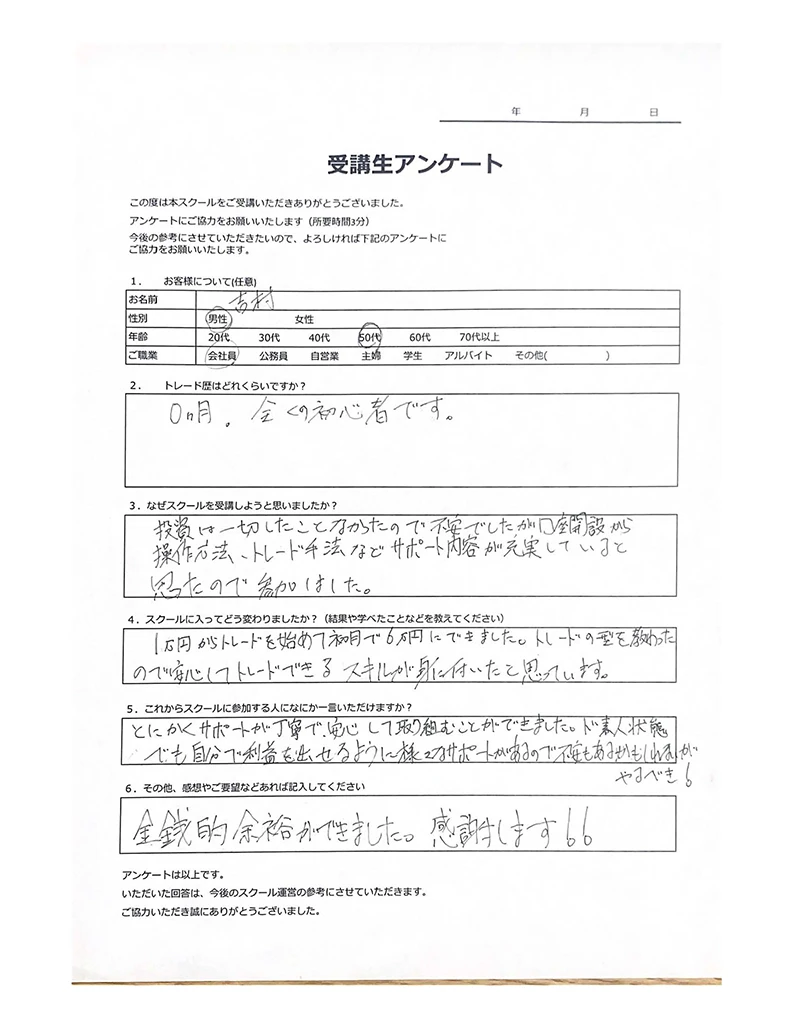 年 月 日
受講生アンケート
この度は本スクールをご受講いただきありがとうございました。
アンケートにご協力をお願いいたします（所要時間3分）
今後の参考にさせていただきたいので、よろしければ下記のアンケートに
ご協力をお願いいたします。
1． お客様について(任意)
お名前 吉村
性別 男性 女性
年齢 20代 30代 40代 50代 60代 70代以上
ご職業 会社員 公務員 自営業 主婦 学生 アルバイト その他( )
2． トレード歴はどれくらいですか？
0ヶ月。全くの初心者です。
3．なぜスクールを受講しようと思いましたか？
投資は一切したことなかったので不安でしたが口座開設から
操作方法、トレード手法などサポート内容が充実していると
思ったので参加しました。
4．スクールに入ってどう変わりましたか？（結果や学べたことなどを教えてください）
1万円からトレードを始めて初月で6万円にできました。トレードの型を教わった
ので安心してトレードできるスキルが身に付いたと思っています。
5．これからスクールに参加する人になにか一言いただけますか？
とにかくサポートが丁寧で、安心して取り組むことができました。ド素人状態
でも自分で利益を出せるように様々なサポートがあるので不安もあるかもしれないが
やるべき！
6．その他、感想やご要望などあれば記入してください
金銭的余裕ができました。感謝します！！
アンケートは以上です。
いただいた回答は、今後のスクール運営の参考にさせていただきます。
ご協力いただき誠にありがとうございました。